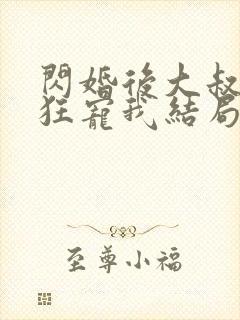 閃婚後大叔
狂寵我結局
至尊小福